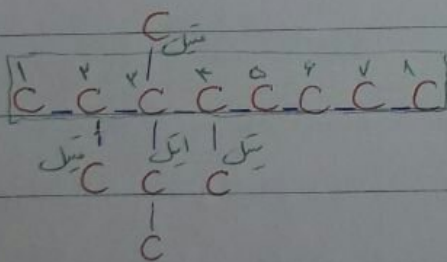 C
متیل
۱ ۲ ۳ ۴ ۵ ۶ ۷ ۸
C_C_C_C_C_C_C_C
متیل C اتیل C متیل C
C